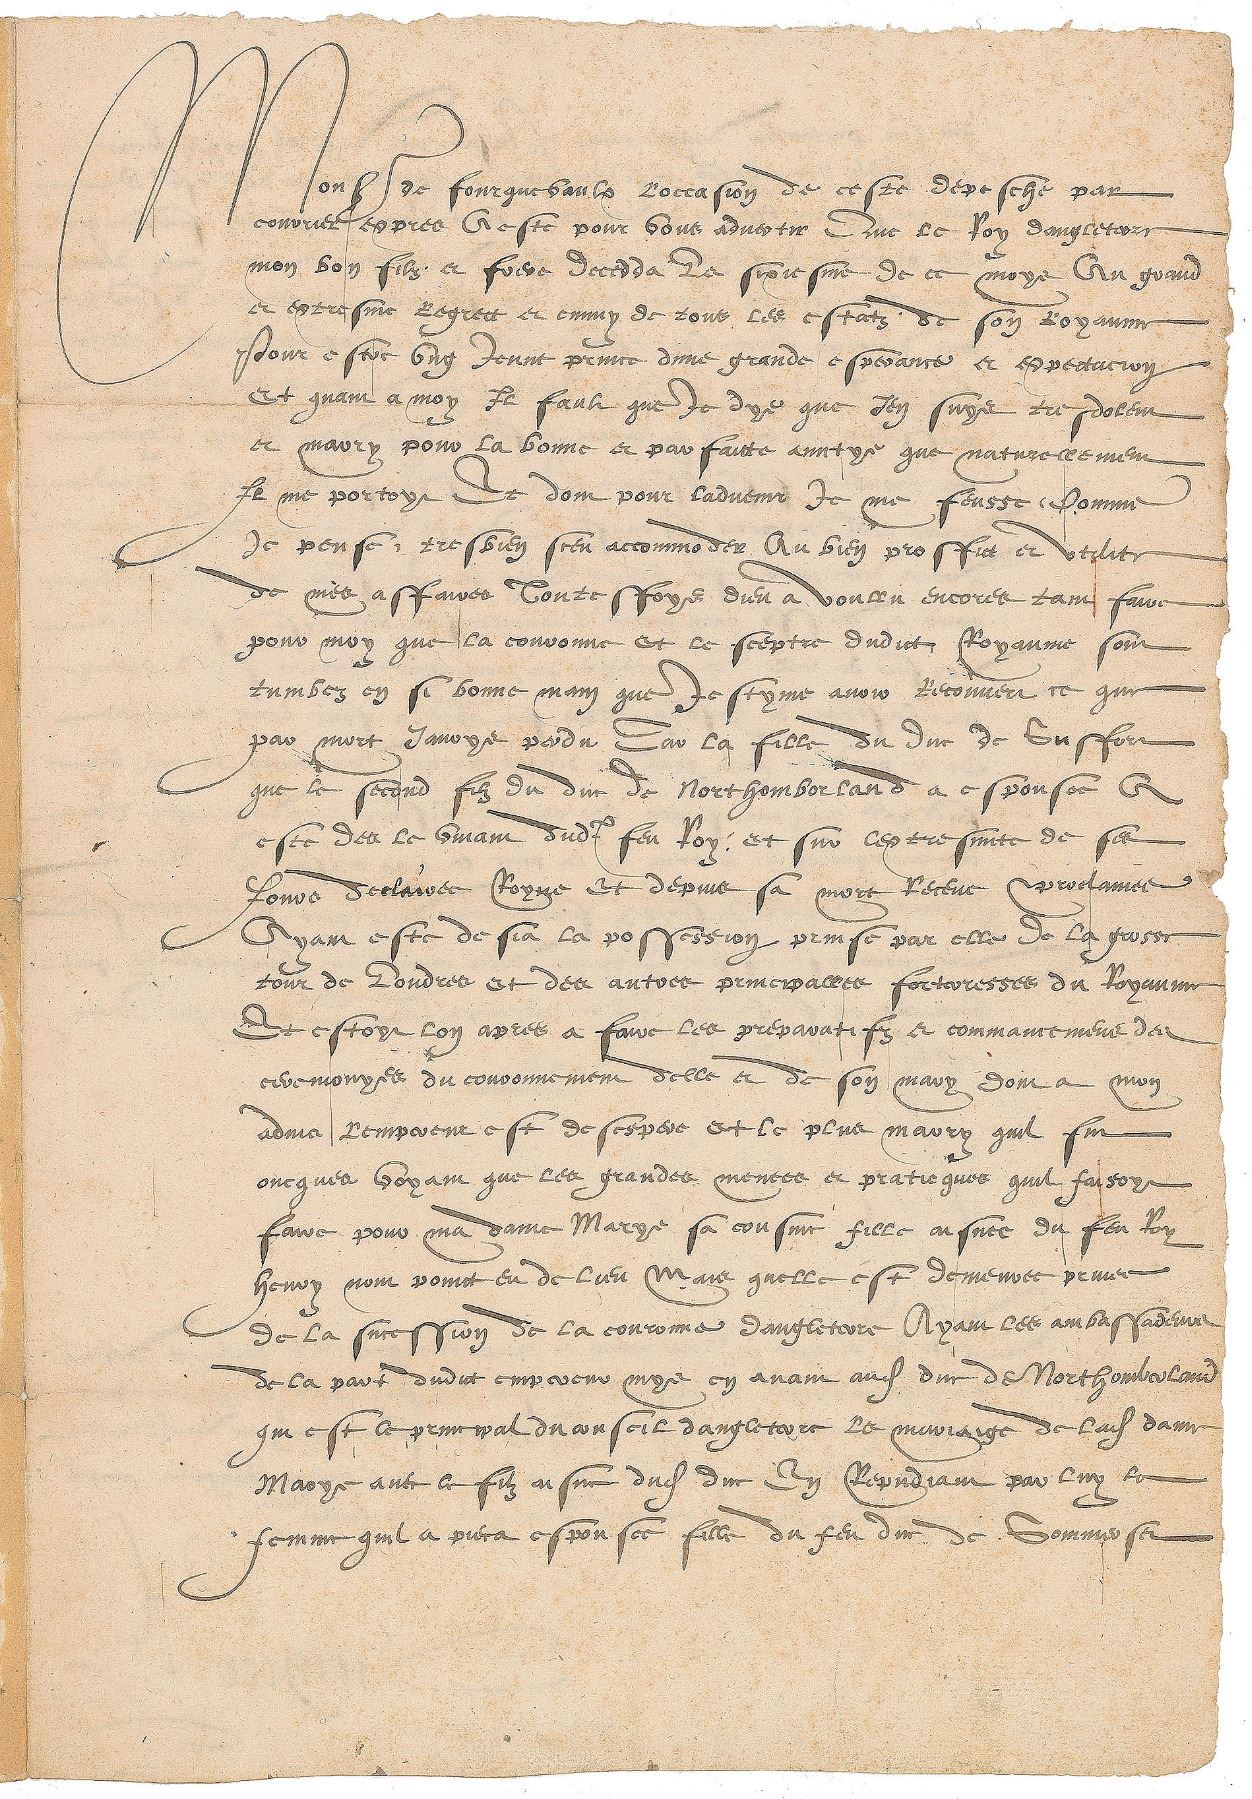 Monsr de fourquevaulx l'occasion de ceste depesche par
courrier expres A este pour vous advertir Que le Roy dangleterre
mon bon filz et frere deceda Le sixiesme de ce moys Au grand
et extresme Regrect et ennuy de tous les estatz de son Royaume
Pour estre ung Jeune prince dune grande esperance et expectacion
Et quant a moy Il fault que Je dye que Jen suys tresdolent
et marry pour la bonne et parfaicte amytye que naturellement
Il me portoyt Et dont pour ladvenir Je me feusse Comme
Je pense, tresbien sceu accommoder Au bien proffict et utilite
de mes affaires Touteffoys dieu a voullu encores tant faire
pour moy que la couronne Et le sceptre dudict Royaume sont
tumbez en si bonne main que Jestyme avoir Recouvert ce que
par mort Javoys perdu Car la fille du duc de Suffort
que le second filz du duc de Northomborland a espousee A
este des le vivant dudt feu Roy. et sur lextresmite de ses
Jours declairee Royne Et depuis sa mort Receue proclamee
Ayant este desia la possession prinse par elle de la grosse
tour de Londres Et des autres principalles forteresses du Royaume
Et estoyt lon apres a faire les preparatifz et commancemens des
ceremonyes du couronnement delle et de son mary Dont a mon
advis Lempereur est desespere Et le plus marry quil fut
oncques voyant que les grandes menees et praticques quil faisoyt
faire pour madame Marye sa cousine fille aisnee du feu Roy
henry nont point eu de lieu Mais quelle est demeuree privee
de la succession de la couronne dangleterre Ayant les ambassadeurs
de la part dudict empereur mys en avant aud duc de Northomberland
qui est le principal du conseil dangleterre le mariaige de lad dame
Marye avec le filz aisne dud duc En Repudiant par luy la
femme quil a pieca espousee fille du feu duc de Sommerset